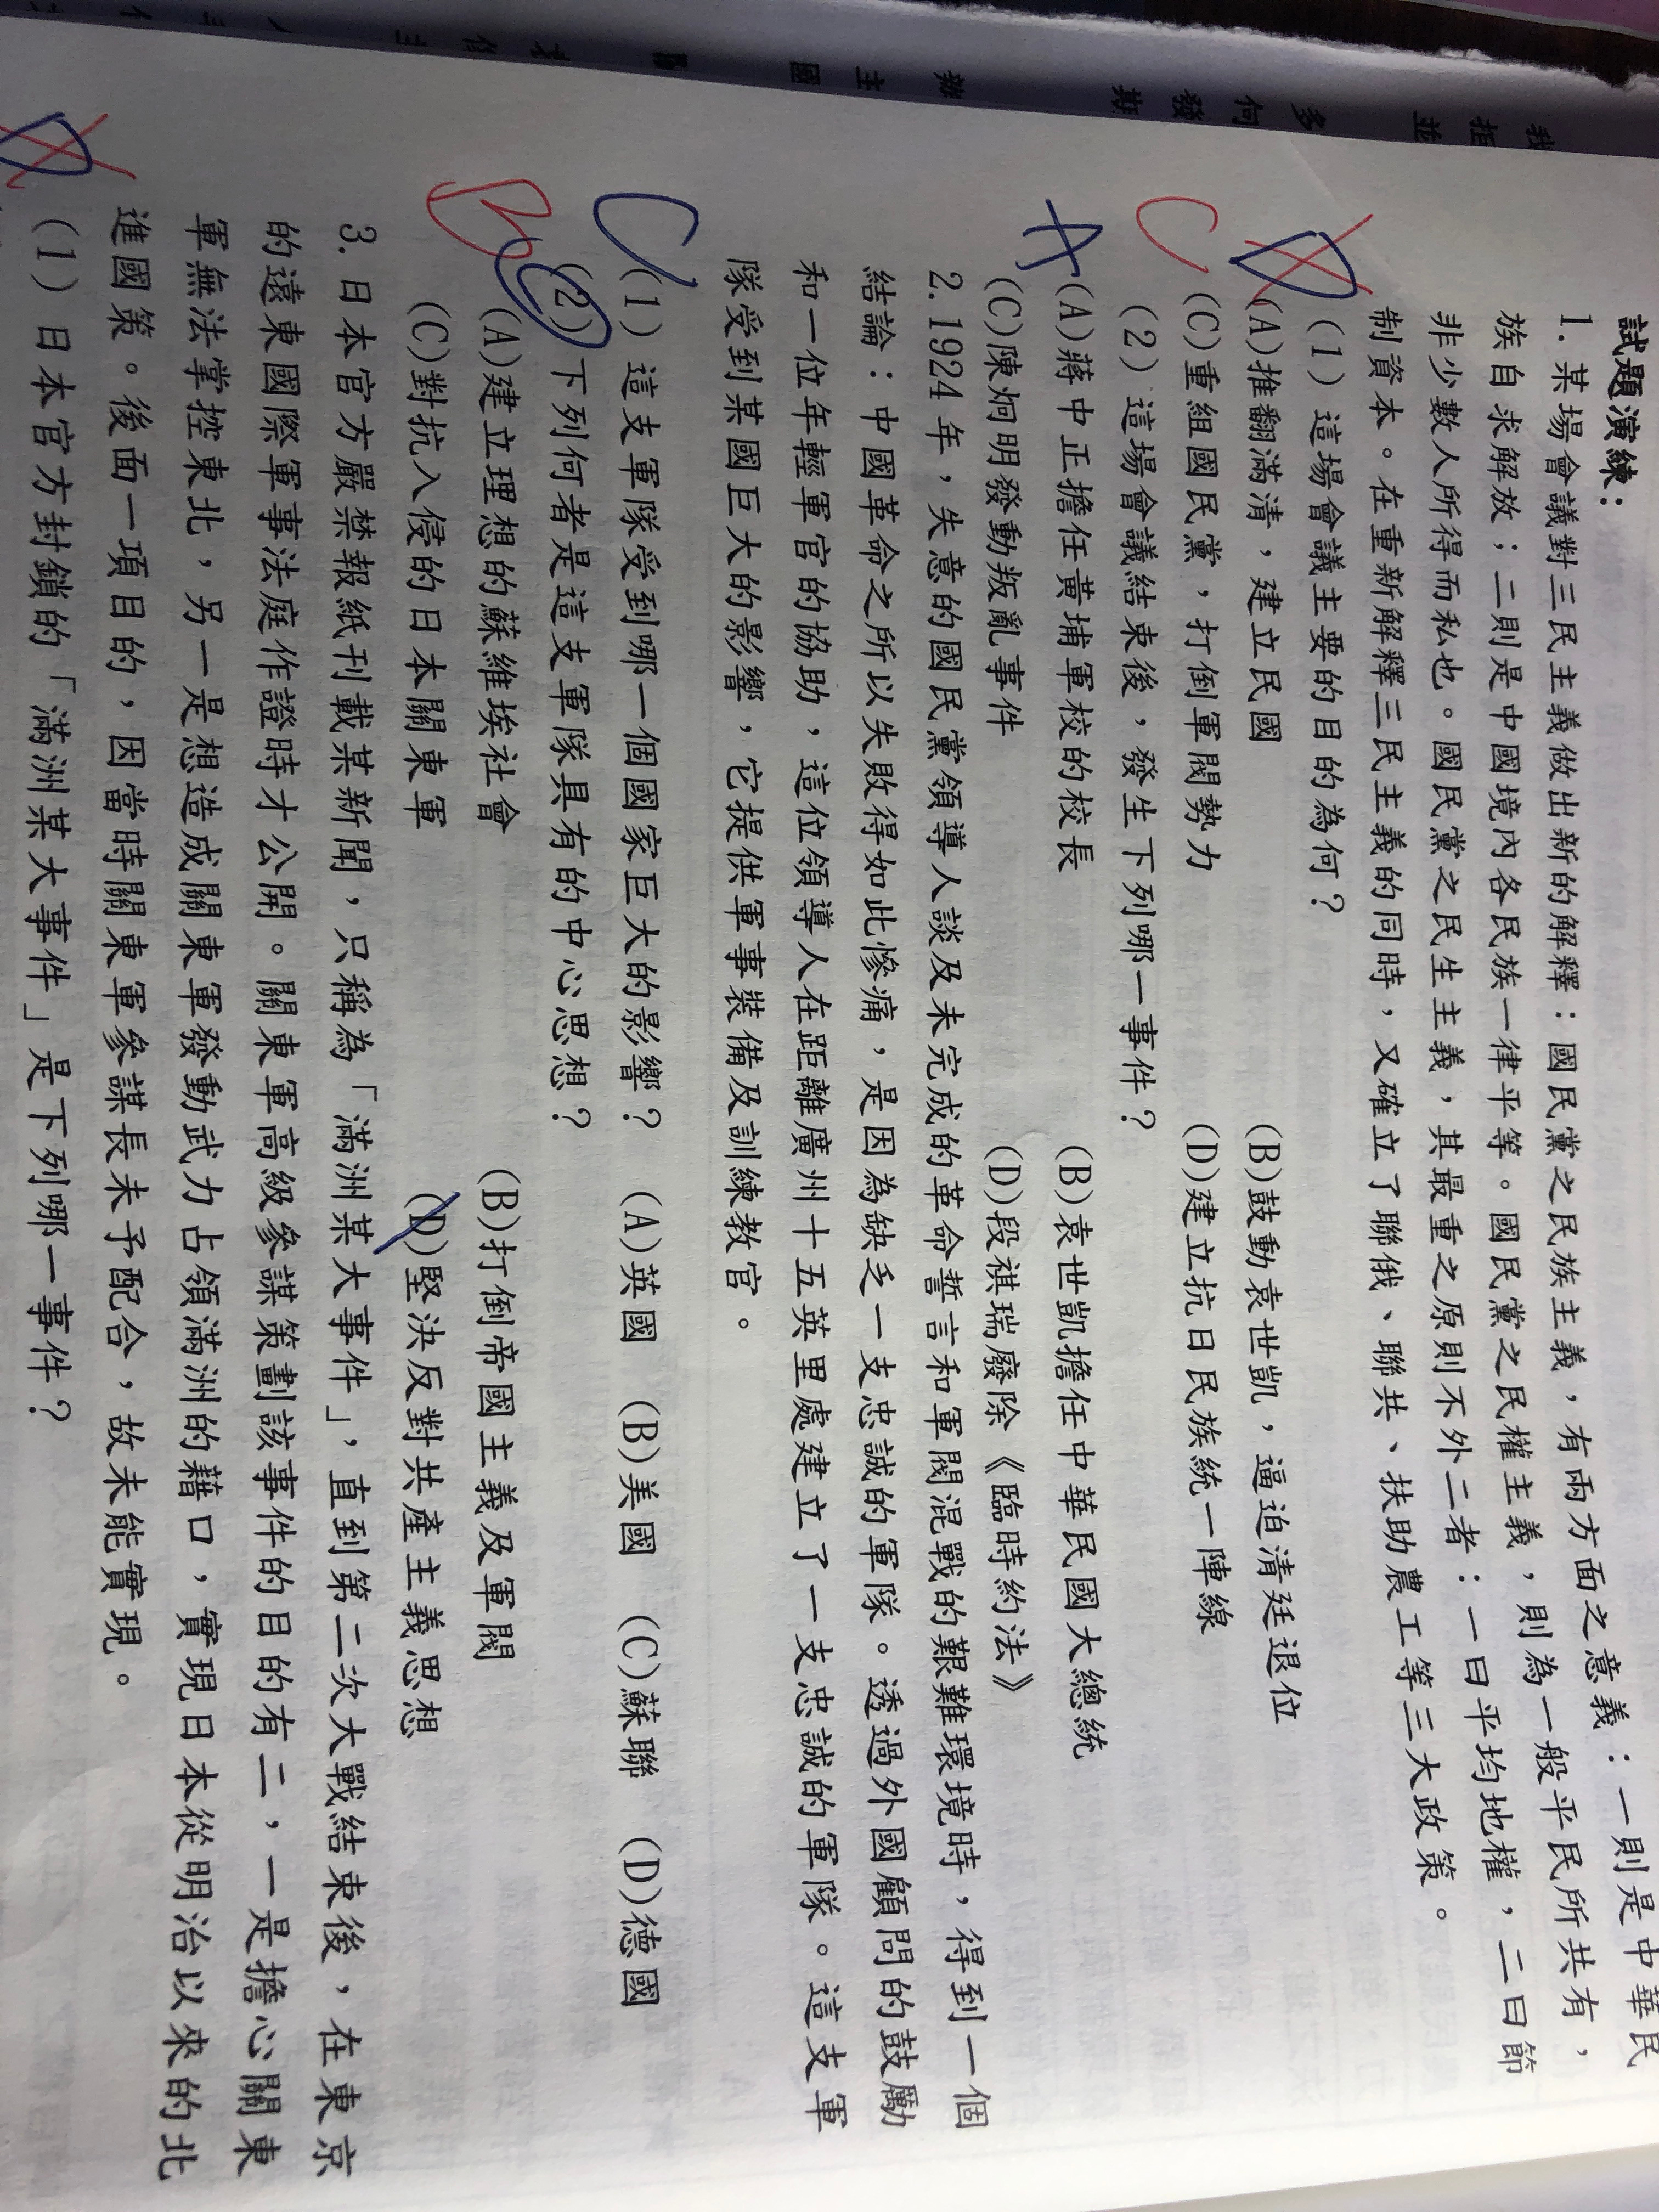 試題演練：
1.某場會議對三民主義做出新的解釋：國民黨之民族主義，有兩方面之意義：一則是中華民
族自求解放；二則是中國境內各民族一律平等。國民黨之民權主義，則為一般平民所共有，
非少數人所得而私也。國民黨之民生主義，其最重之原則不外二者：一曰平均地權，二曰節
制資本。在重新解釋三民主義的同時，又確立了聯俄、聯共、扶助農工等三大政策。
(1) 這場會議主要的目的為何？
(A)推翻滿清，建立民國 (B)鼓動袁世凱，逼迫清廷退位
C (C)重組國民黨，打倒軍閥勢力 (D)建立抗日民族統一陣線
(2) 這場會議結束後，發生下列哪一事件？
A (A)蔣中正擔任黃埔軍校的校長 (B)袁世凱擔任中華民國大總統
(C)陳炯明發動叛亂事件 (D)段祺瑞廢除《臨時約法》
2.1924年，失意的國民黨領導人談及未完成的革命誓言和軍閥混戰的艱難環境時，得到一個
結論：中國革命之所以失敗得如此慘痛，是因為缺乏一支忠誠的軍隊。透過外國顧問的鼓勵
和一位年輕軍官的協助，這位領導人在距離廣州十五英里處建立了一支忠誠的軍隊。這支軍
隊受到某國巨大的影響，它提供軍事裝備及訓練教官。
C (1) 這支軍隊受到哪一個國家巨大的影響？ (A)英國 (B)美國 (C)蘇聯 (D)德國
B (2) 下列何者是這支軍隊具有的中心思想？
(A)建立理想的蘇維埃社會 (B)打倒帝國主義及軍閥
(C)對抗入侵的日本關東軍 (D)堅決反對共產主義思想
3.日本官方嚴禁報紙刊載某新聞，只稱為「滿洲某大事件」，直到第二次大戰結束後，在東京
的遠東國際軍事法庭作證時才公開。關東軍高級參謀策劃該事件的目的有二，一是擔心關東
軍無法掌控東北，另一是想造成關東軍發動武力占領滿洲的藉口，實現日本從明治以來的北
進國策。後面一項目的，因當時關東軍參謀長未予配合，故未能實現。
(1) 日本官方封鎖的「滿洲某大事件」是下列哪一事件？